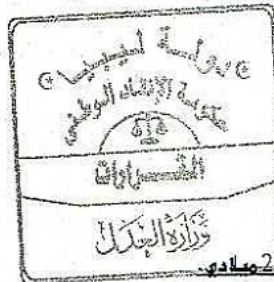 دولة ليبيا
حكومة الإنقاذ الوطني
القرارات
وزارة العدل
2 ميلادي.